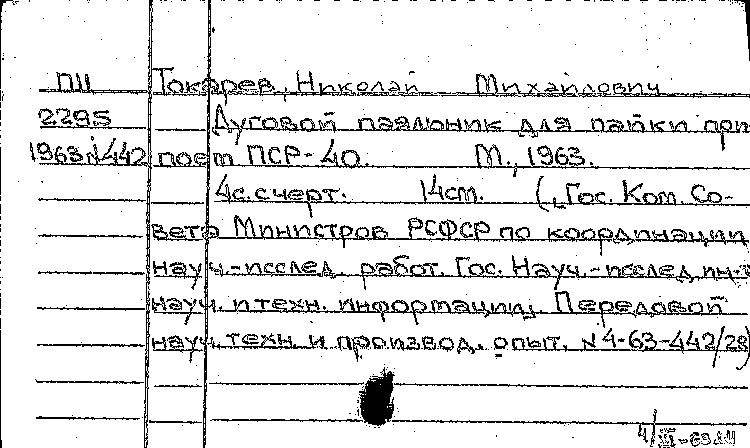 ПII Токарев, Николай Михайлович
2295 Дуговой паяльник для пайки при
1963 №442 поем ПСР-40. М., 1963.
4с. с черт. 14см. („Гос. Ком. Со-
вета Министров РСФСР по координации
науч.-исслед. работ. Гос. Науч.-исслед. ин-т
науч. и техн. информации. Передовой
науч. техн. и производ. опыт. №4-63-442/28)
4/III-63